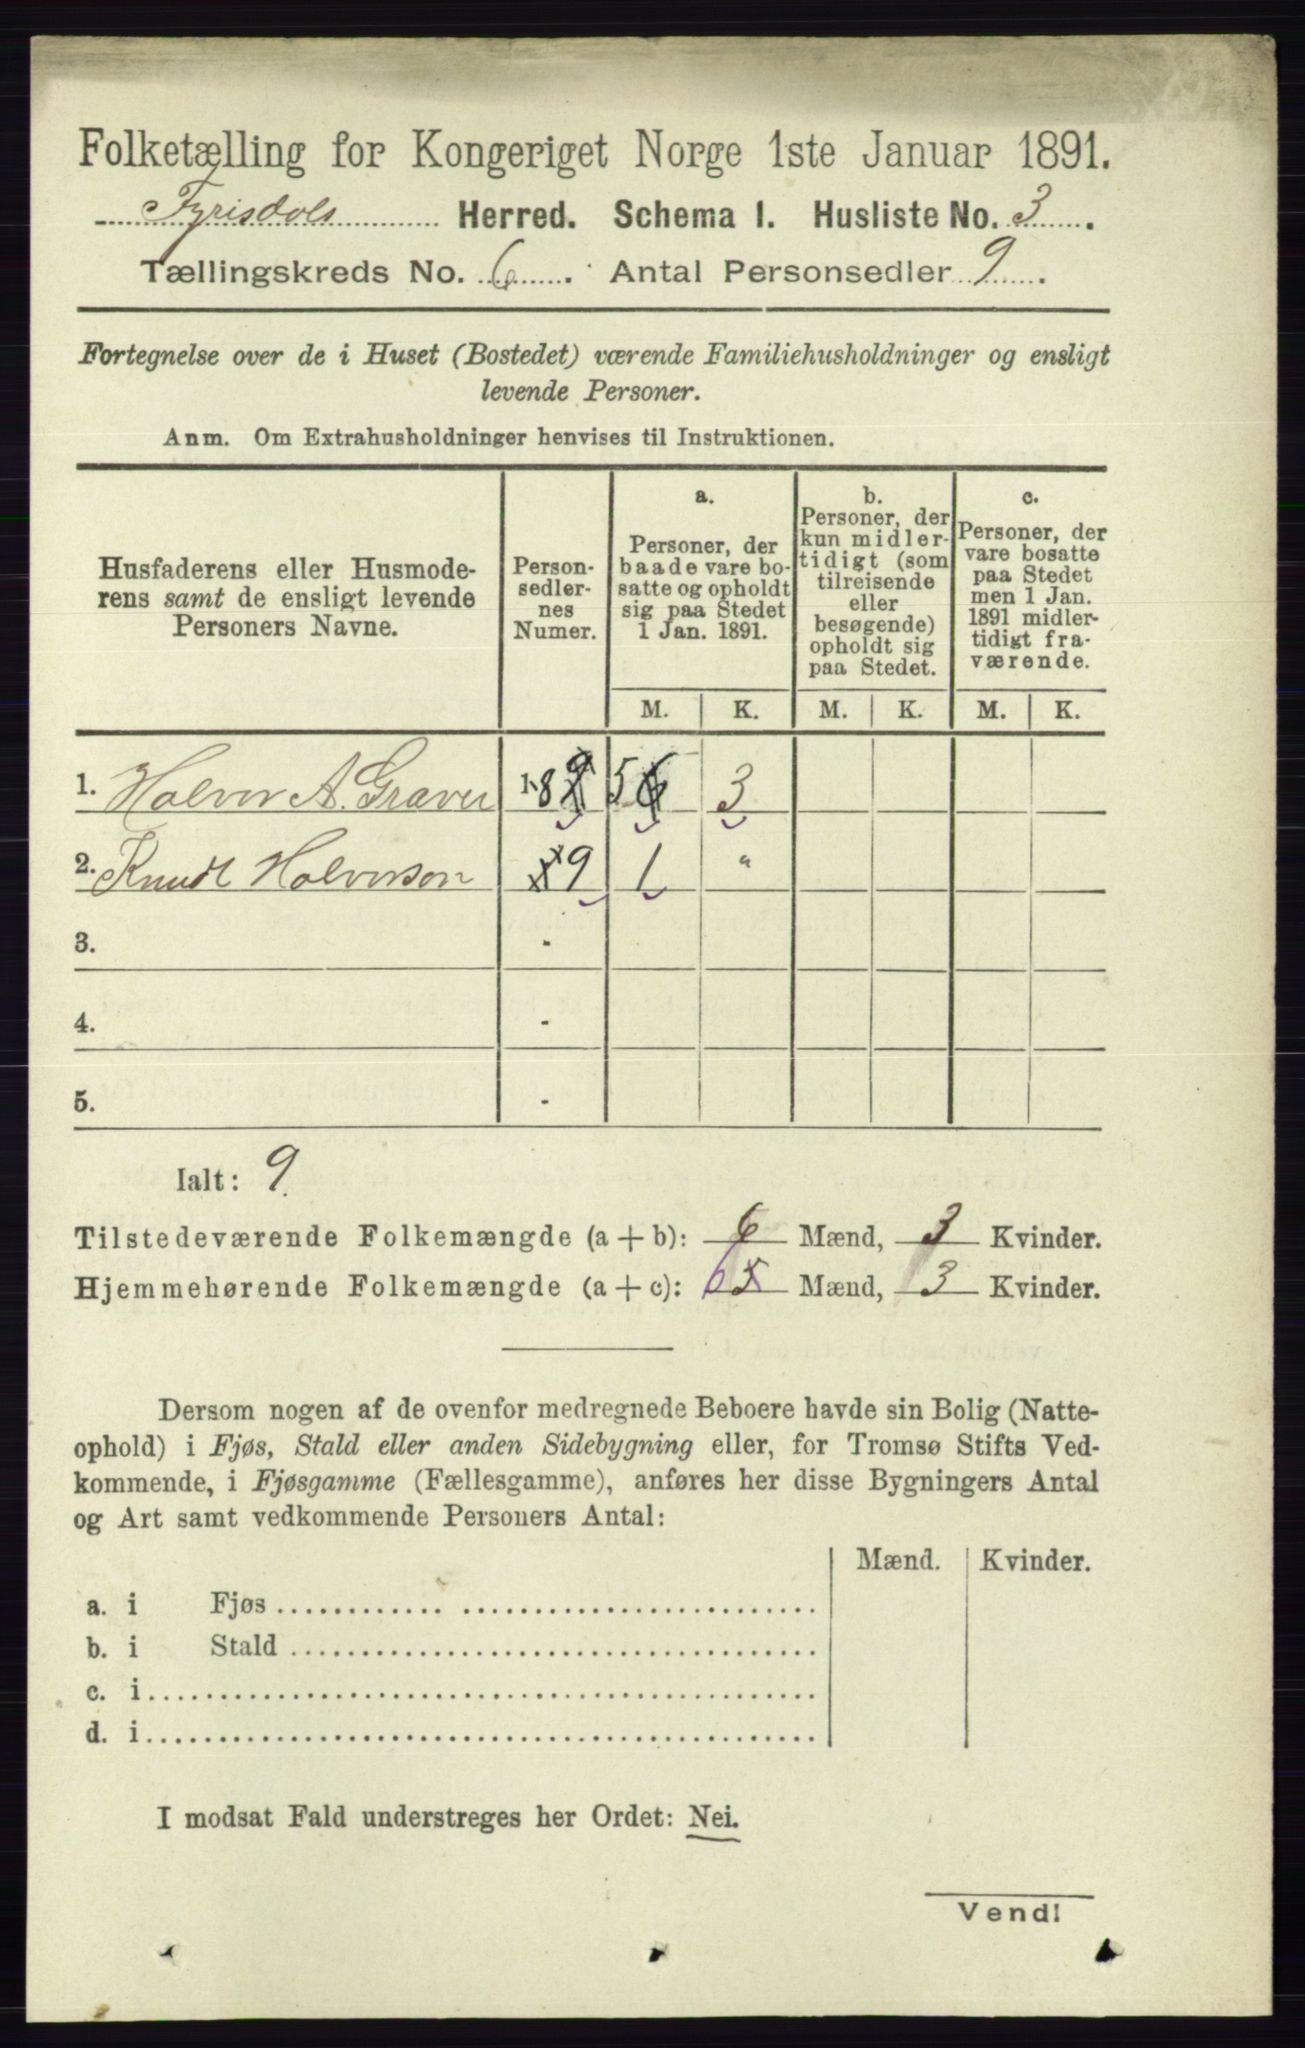 Folketælling for Kongeriget Norge 1ste Januar 1891.
Fyrisdals Herred. Schema I. Husliste No. 3.
Tællingskreds No. 6. Antal Personsedler 9.
Fortegnelse over de i Huset (Bostedet) værende Familiehusholdninger og ensligt
levende Personer.
Anm. Om Extrahusholdninger henvises til Instruktionen.
Husfaderens eller Husmode-
rens samt de ensligt levende
Personers Navne.
Person-
sedler-
nes
Numer.
a.
Personer, der
baade vare bo-
satte og opholdt
sig paa Stedet
1 Jan. 1891.
b.
Personer, der
kun midler-
tidigt (som
tilreisende
eller
besøgende)
opholdt sig
paa Stedet.
c.
Personer, der
vare bosatte
paa Stedet
men 1 Jan.
1891 midler-
tidigt fra-
værende.
M. K. M. K. M. K.
1. Halvor A. Graver 1-8 5 3
2. Knudt Halvorson 9 1 "
3. -
4. -
5. -
Ialt: 9.
Tilstedeværende Folkemængde (a + b): 6 Mænd, 3 Kvinder.
Hjemmehørende Folkemængde (a + c): 6 5 Mænd, 3 Kvinder.
Dersom nogen af de ovenfor medregnede Beboere havde sin Bolig (Natte-
ophold) i Fjøs, Stald eller anden Sidebygning eller, for Tromsø Stifts Ved-
kommende, i Fjøsgamme (Fællesgamme), anføres her disse Bygningers Antal
og Art samt vedkommende Personers Antal:
Mænd. Kvinder.
a. i Fjøs
b. i Stald
c. i
d. i
I modsat Fald understreges her Ordet: Nei.
Vend!